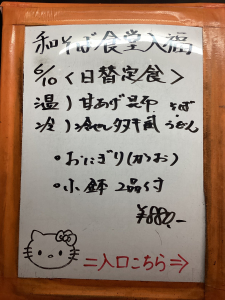 和そば食堂入福
6/10<日替定食>
温)甘あげ昆布 そば
冷)冷やしタヌキ風 うどん
・おにぎり(かつお)
・小鉢 2品付
¥880,-
=入口こちら⇒